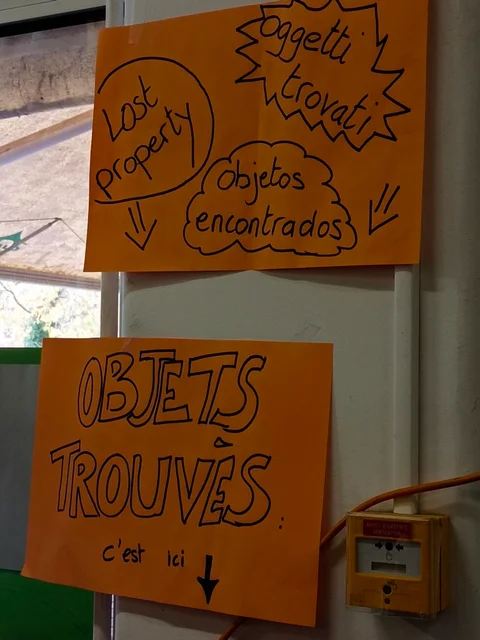 Lost
property
Oggetti
trovati
Objetos
encontrados
OBJETS
TROUVÉS :
c'est ici